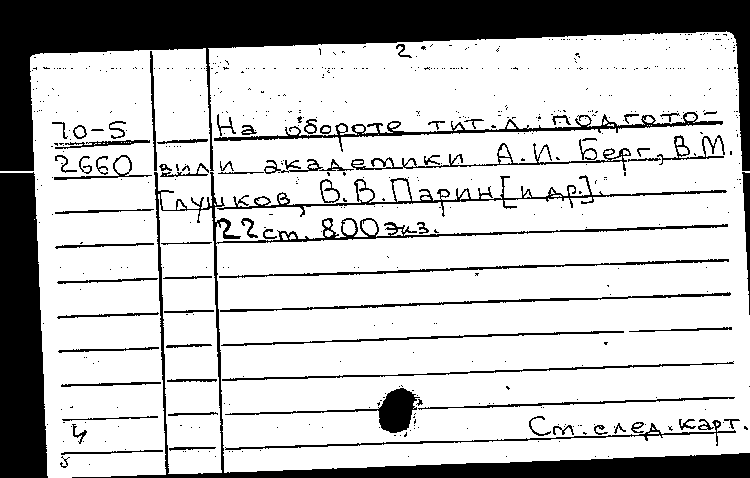 2.
70-5 На обороте тит.л.: подгото-
2660 вили академики А.И. Берг, В.М.
Глушков, В.В. Парин [и др.].
22 ст. 800 экз.
4 Ст. след. карт.